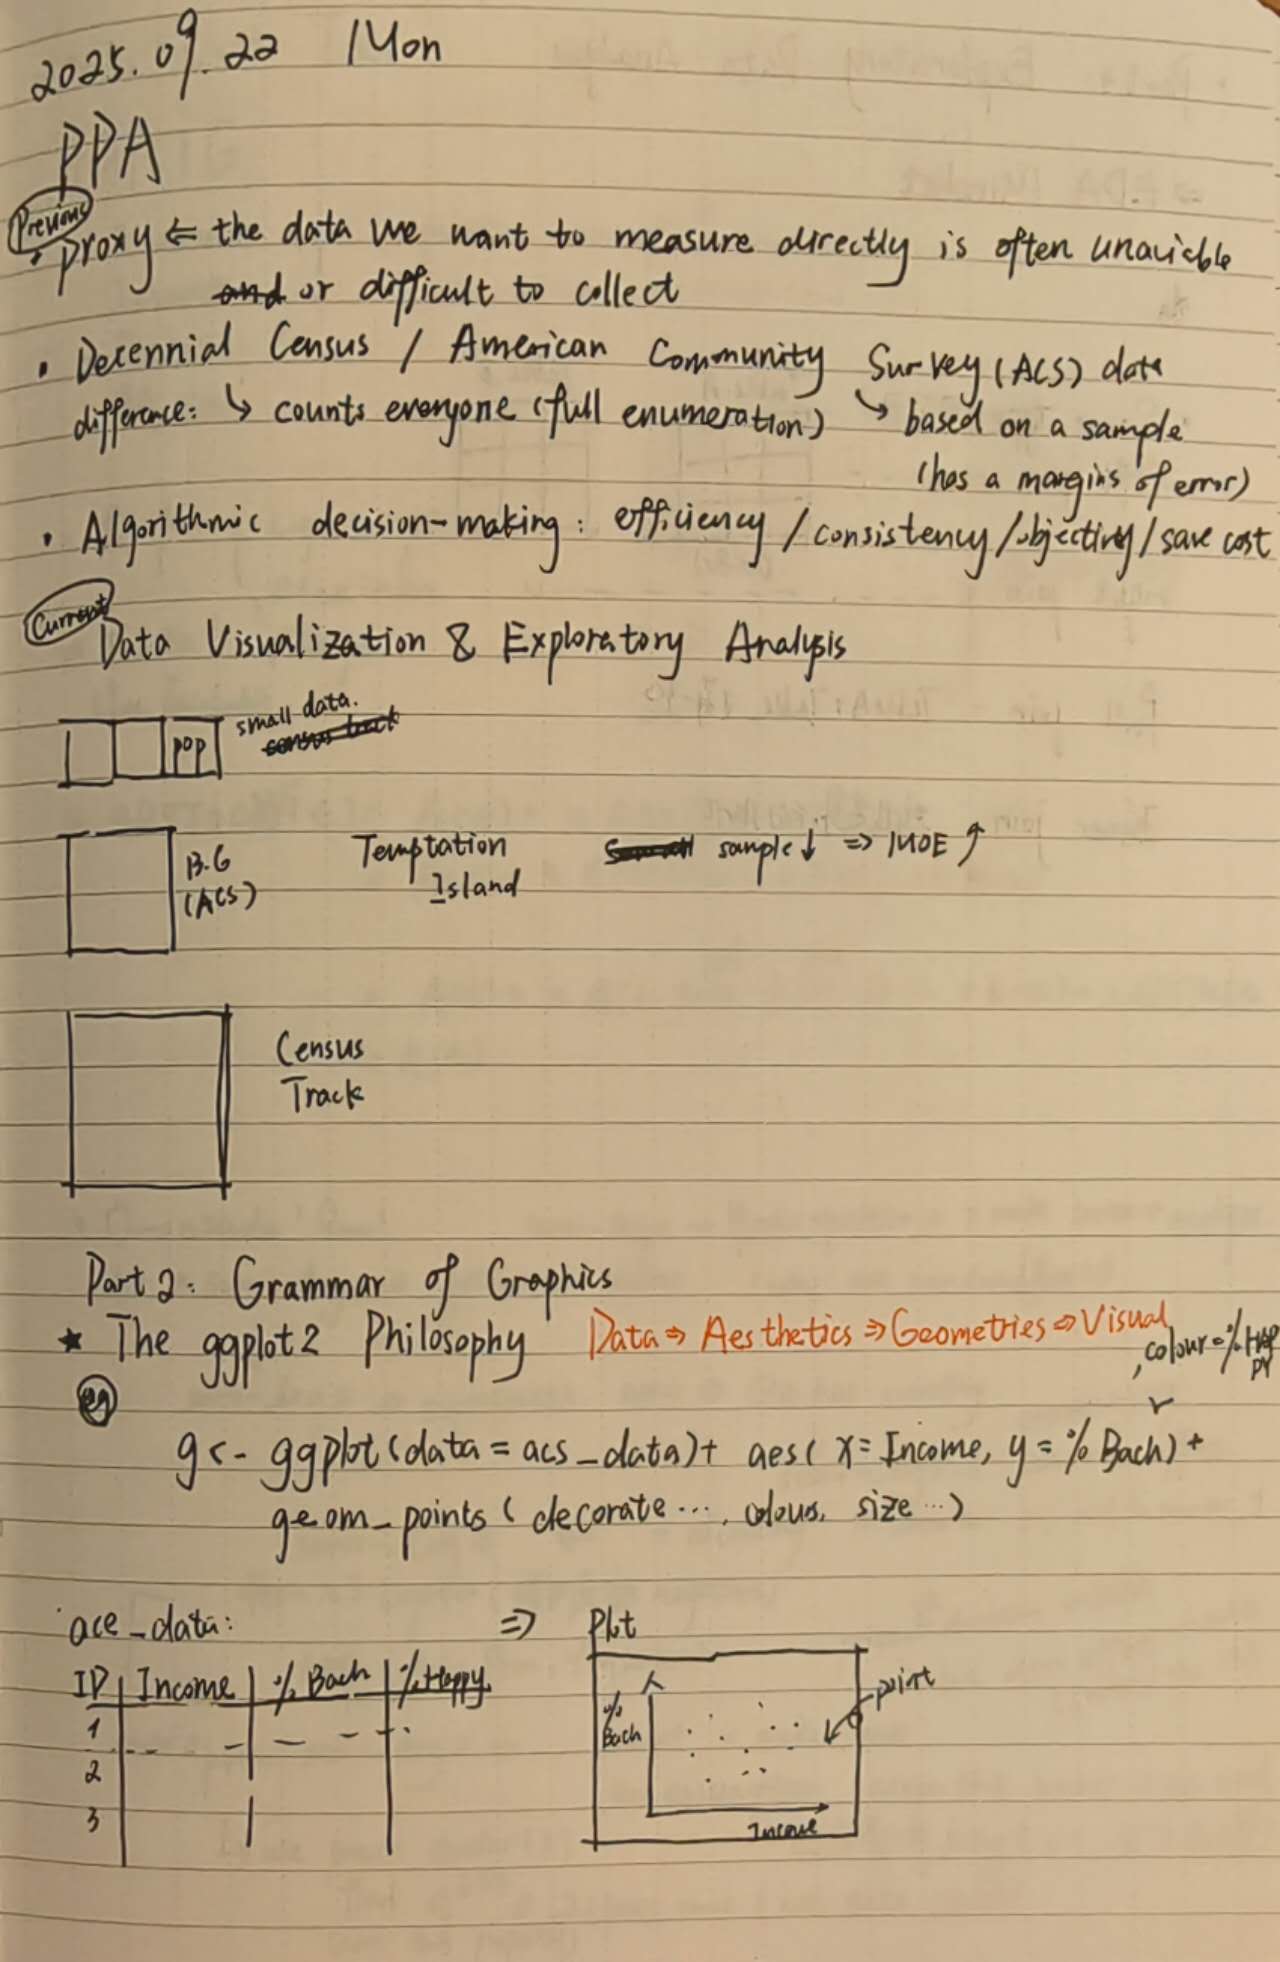 2025.09.22 Mon
PPA
Previous
· proxy ⇐ the data we want to measure directly is often unavicble
and or difficult to collect
· Decennial Census / American Community Survey (ACS) data
difference: ↳ counts everyone (full enumeration) ↳ based on a sample
(has a margins of error)
· Algorithmic decision-making: efficiency / consistency / objectivity / save cost
Current
Data Visualization & Exploratory Analysis
small data.
census track
pop
B.G
(ACS)
Temptation
Island
sample ↓ ⇒ MOE ↑
Census
Track
Part 2: Grammar of Graphics
★ The ggplot2 Philosophy Data ⇒ Aesthetics ⇒ Geometries ⇒ Visual
, colour = % Happy
eg
g <- ggplot (data = acs_data) + aes ( x = Income, y = % Bach) +
geom_points ( decorate ..., colous, size ...)
ace_data: ⇒ Plot
ID Income % Bach % Happy
1
2
3
% Bach
point
Income